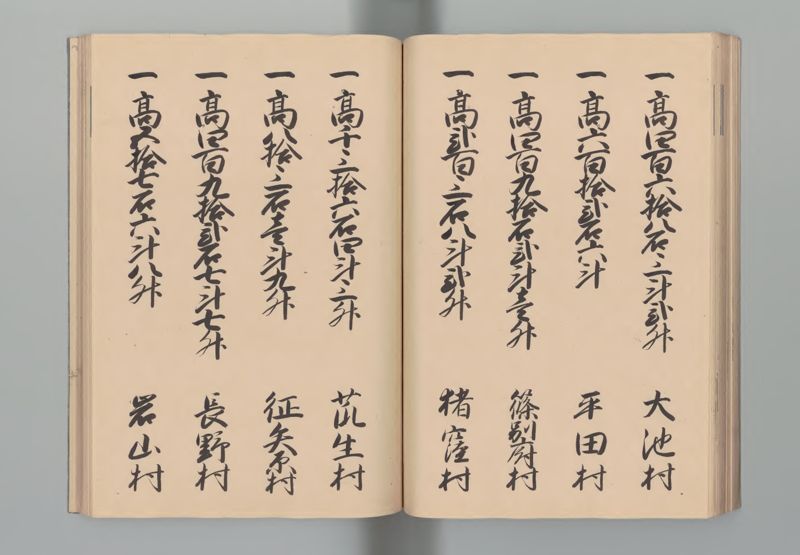 一高四百六拾八石三斗弐升 大池村
一高六百拾弐石六斗 平田村
一高四百九拾石弐斗壱升 篠別府村
一高弐百三石八斗弐升 猪窪村
一高千三拾六石四斗三升 茘生村
一高八拾三石壱斗九升 征矢原村
一高四百九拾弐石七斗七升 長野村
一高五拾七石六斗八升 岩山村